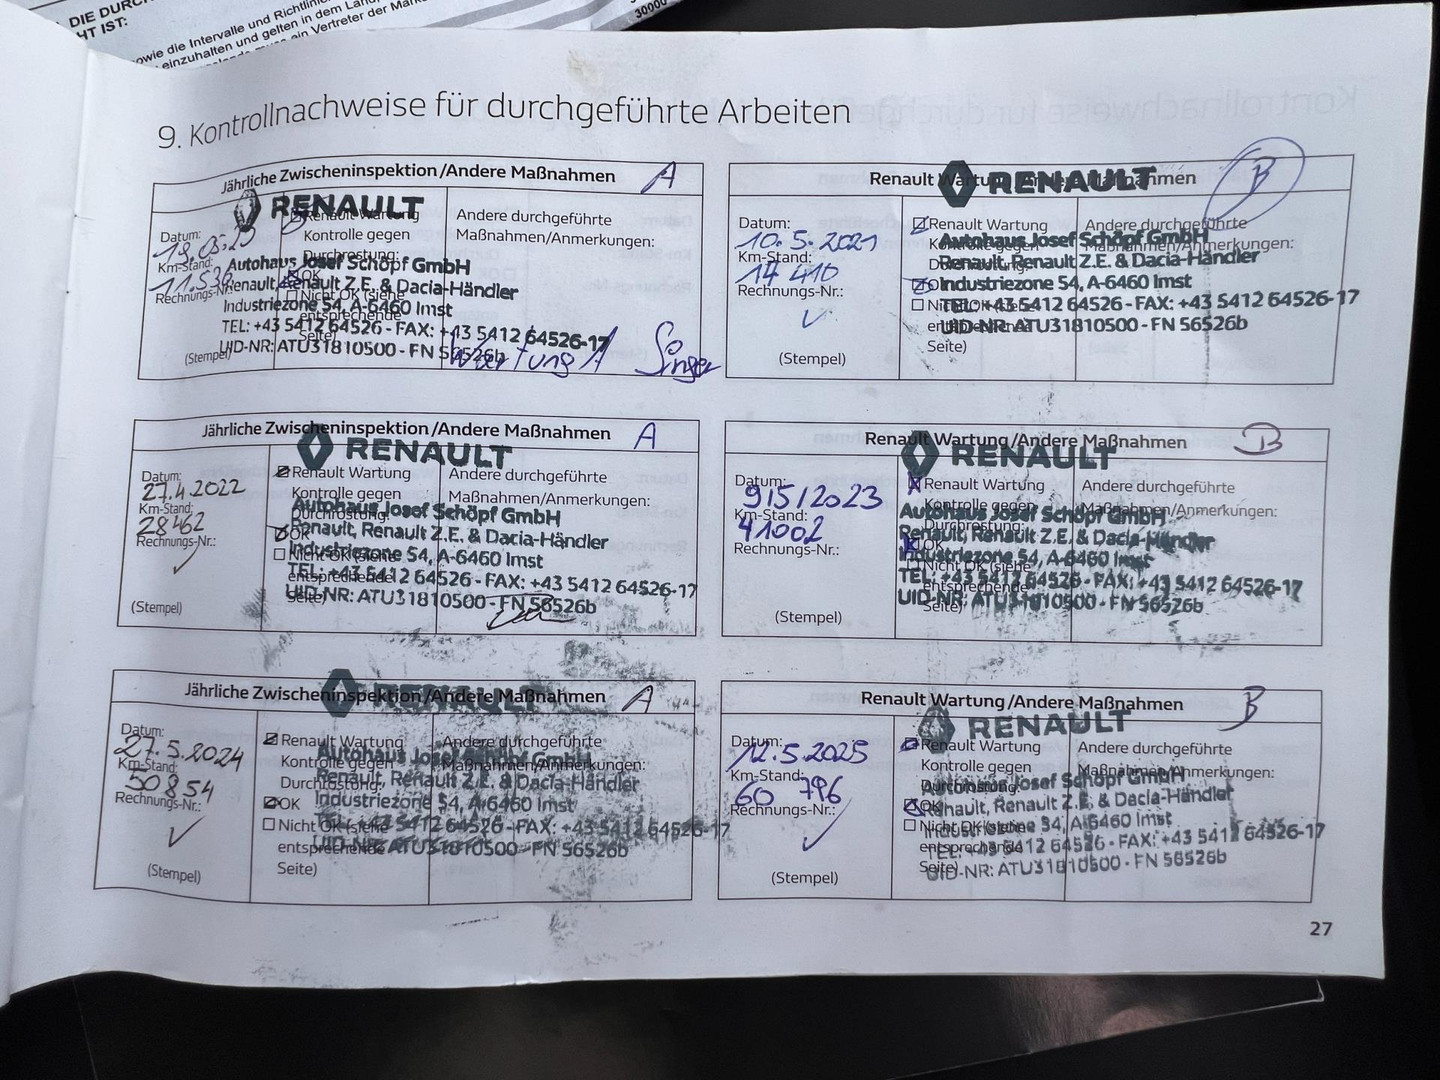 DIE DURCH
HT IST:
owie die Intervalle und Richtlinien
einzuhalten und gelten in dem Land
ein Vertreter der Mark
30000
9. Kontrollnachweise für durchgeführte Arbeiten
Jährliche Zwischeninspektion/Andere Maßnahmen A
RENAULT
Renault Wartung
Andere durchgeführte
Kontrolle gegen
Maßnahmen/Anmerkungen:
Datum:
Durchrostung:
Km-Stand:
Autohaus Josef Schöpf GmbH
OK
11.538
Renault, Renault Z.E. & Dacia-Händler
Rechnungs-Nr.:
Nicht OK (siehe
Industriezone 54, A-6460 Imst
entsprechende
TEL: +43 5412 64526 - FAX: +43 5412 64526-17
Seite)
(Stempel)
UID-NR: ATU31810500 - FN 56526b
Wartung A
Renault Wartung/Andere Maßnahmen B
RENAULT
Datum:
Renault Wartung
Andere durchgeführte
10.5.2021
Kontrolle gegen
Maßnahmen/Anmerkungen:
Autohaus Josef Schöpf GmbH
Km-Stand:
Durchrostung:
Renault, Renault Z.E. & Dacia-Händler
14 410
OK
Industriezone 54, A-6460 Imst
Rechnungs-Nr.:
Nicht OK (siehe
TEL: +43 5412 64526 - FAX: +43 5412 64526-17
entsprechende
UID-NR: ATU31810500 - FN 56526b
Seite)
(Stempel)
Jährliche Zwischeninspektion/Andere Maßnahmen A
RENAULT
Datum:
Renault Wartung
Andere durchgeführte
27.4.2022
Kontrolle gegen
Maßnahmen/Anmerkungen:
Km-Stand:
Durchrostung:
Autohaus Josef Schöpf GmbH
28462
OK
Renault, Renault Z.E. & Dacia-Händler
Rechnungs-Nr.:
Nicht OK (siehe
Industriezone 54, A-6460 Imst
entsprechende
TEL: +43 5412 64526 - FAX: +43 5412 64526-17
Seite)
UID-NR: ATU31810500 - FN 56526b
(Stempel)
Renault Wartung/Andere Maßnahmen B
RENAULT
Datum:
Renault Wartung
Andere durchgeführte
9/5/2023
Kontrolle gegen
Maßnahmen/Anmerkungen:
Km-Stand:
Durchrostung:
Autohaus Josef Schöpf GmbH
41002
OK
Renault, Renault Z.E. & Dacia-Händler
Rechnungs-Nr.:
Nicht OK (siehe
Industriezone 54, A-6460 Imst
entsprechende
TEL: +43 5412 64526 - FAX: +43 5412 64526-17
Seite)
UID-NR: ATU31810500 - FN 56526b
(Stempel)
Jährliche Zwischeninspektion/Andere Maßnahmen A
RENAULT
Datum:
Renault Wartung
Andere durchgeführte
27.5.2024
Kontrolle gegen
Maßnahmen/Anmerkungen:
Autohaus Josef Schöpf GmbH
Km-Stand:
Durchrostung:
Renault, Renault Z.E. & Dacia-Händler
50854
OK
Industriezone 54, A-6460 Imst
Rechnungs-Nr.:
Nicht OK (siehe
TEL: +43 5412 64526 - FAX: +43 5412 64526-17
entsprechende
UID-NR: ATU31810500 - FN 56526b
Seite)
(Stempel)
Renault Wartung/Andere Maßnahmen B
RENAULT
Datum:
Renault Wartung
Andere durchgeführte
12.5.2025
Kontrolle gegen
Maßnahmen/Anmerkungen:
Km-Stand:
Durchrostung:
Autohaus Josef Schöpf GmbH
60 796
OK
Renault, Renault Z.E. & Dacia-Händler
Rechnungs-Nr.:
Nicht OK (siehe
Industriezone 54, A-6460 Imst
entsprechende
TEL: +43 5412 64526 - FAX: +43 5412 64526-17
Seite)
UID-NR: ATU31810500 - FN 56526b
(Stempel)
27